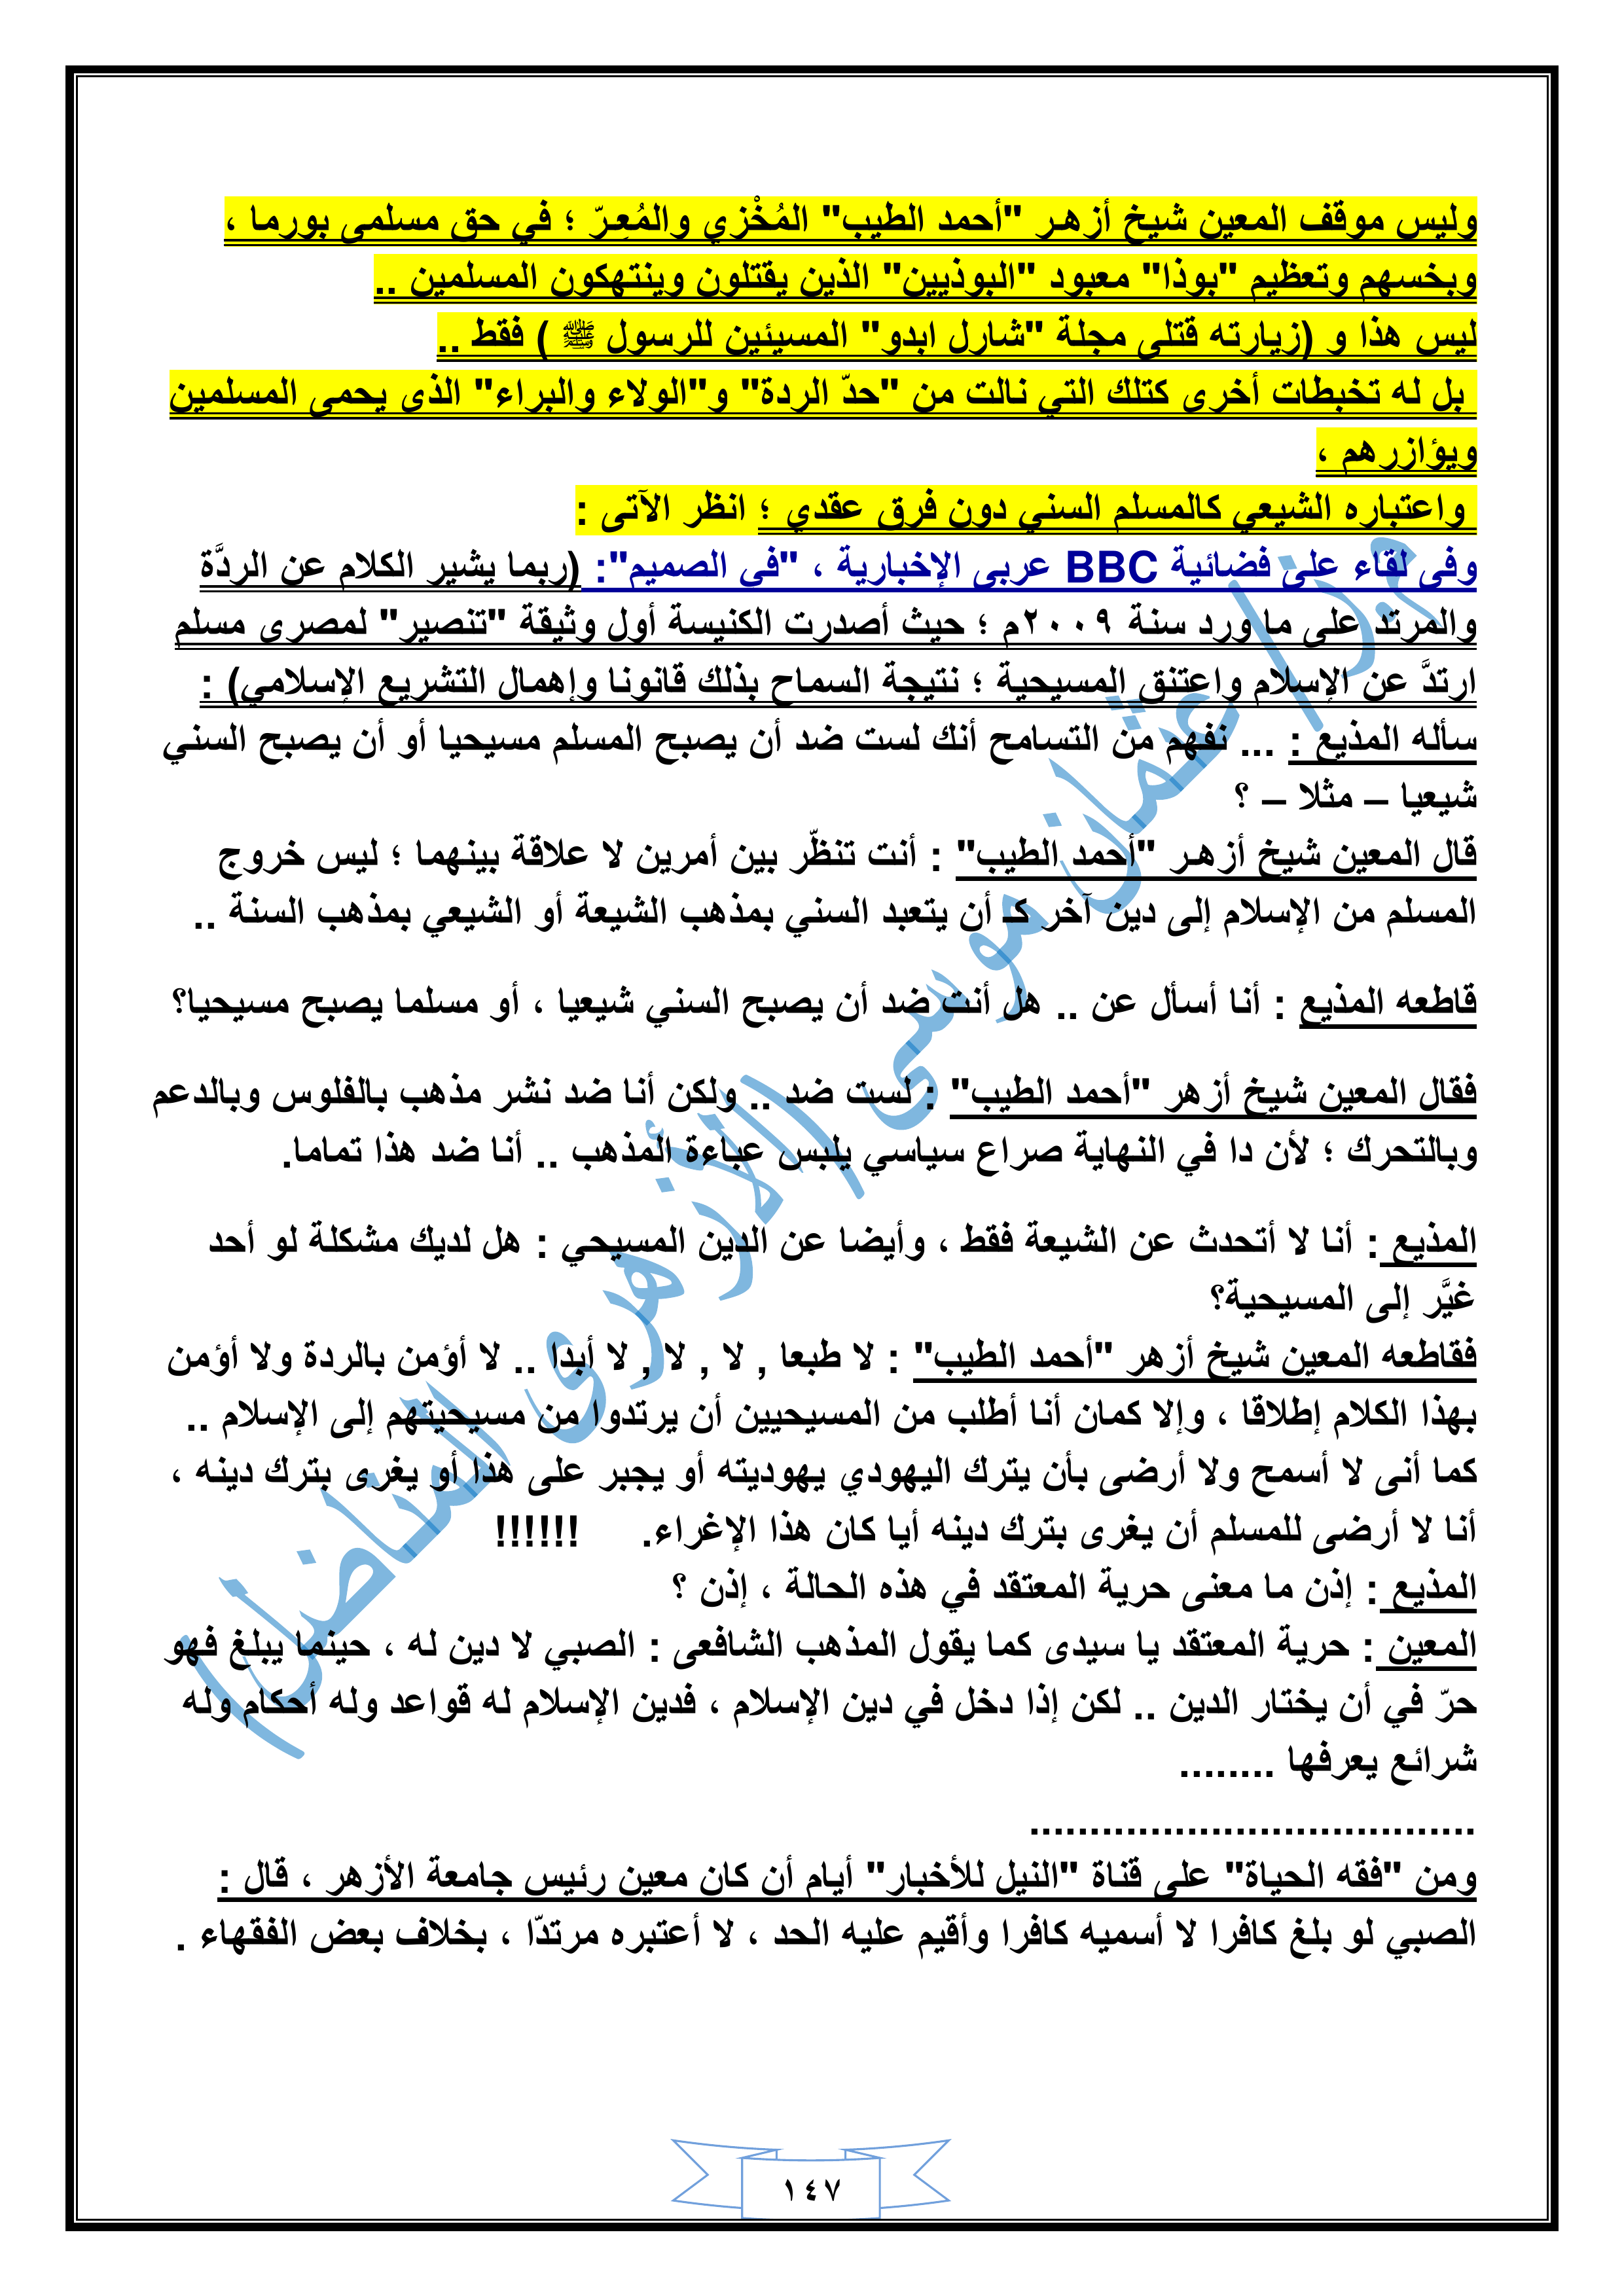 وليس موقف المعين شيخ أزهـر "أحمد الطيب" المُخْزي والمُعِـرّ ؛ في حق مسلمى بورما ،
وبخسهم وتعظيم "بوذا" معبود "البوذيين" الذين يقتلون وينتهكون المسلمين ..
ليس هذا و (زيارته قتلى مجلة "شارل ابدو" المسيئين للرسول ﷺ ) فقط ..
بل له تخبطات أخرى كتلك التي نالت من "حدّ الردة" و"الولاء والبراء" الذى يحمى المسلمين
ويؤازرهم ،
واعتباره الشيعي كالمسلم السني دون فرق عقدي ؛ انظر الآتى :
وفى لقاء على فضائية BBC عربى الإخبارية ، "فى الصميم": (ربما يشير الكلام عن الردَّة
والمرتد على ما ورد سنة ٢٠٠٩م ؛ حيث أصدرت الكنيسة أول وثيقة "تنصير" لمصرى مسلم
ارتدَّ عن الإسلام واعتنق المسيحية ؛ نتيجة السماح بذلك قانونا وإهمال التشريع الإسلامي) :
سأله المذيع : ... نفهم من التسامح أنك لست ضد أن يصبح المسلم مسيحيا أو أن يصبح السني
شيعيا – مثلا – ؟
قال المعين شيخ أزهـر "أحمد الطيب" : أنت تنظّر بين أمرين لا علاقة بينهما ؛ ليس خروج
المسلم من الإسلام إلى دين آخر كـ أن يتعبد السني بمذهب الشيعة أو الشيعي بمذهب السنة ..
قاطعه المذيع : أنا أسأل عن .. هل أنت ضد أن يصبح السني شيعيا ، أو مسلما يصبح مسيحيا؟
فقال المعين شيخ أزهر "أحمد الطيب" : لست ضد .. ولكن أنا ضد نشر مذهب بالفلوس وبالدعم
وبالتحرك ؛ لأن دا في النهاية صراع سياسي يلبس عباءة المذهب .. أنا ضد هذا تماما.
المذيع : أنا لا أتحدث عن الشيعة فقط ، وأيضا عن الدين المسيحي : هل لديك مشكلة لو أحد
غيَّر إلى المسيحية؟
فقاطعه المعين شيخ أزهر "أحمد الطيب" : لا طبعا , لا , لا , لا أبدا .. لا أؤمن بالردة ولا أؤمن
بهذا الكلام إطلاقا ، وإلا كمان أنا أطلب من المسيحيين أن يرتدوا من مسيحيتهم إلى الإسلام ..
كما أنى لا أسمح ولا أرضى بأن يترك اليهودي يهوديته أو يجبر على هذا أو يغرى بترك دينه ،
أنا لا أرضى للمسلم أن يغرى بترك دينه أيا كان هذا الإغراء. !!!!!!
المذيع : إذن ما معنى حرية المعتقد في هذه الحالة ، إذن ؟
المعين : حرية المعتقد يا سيدى كما يقول المذهب الشافعى : الصبي لا دين له ، حينما يبلغ فهو
حرّ في أن يختار الدين .. لكن إذا دخل في دين الإسلام ، فدين الإسلام له قواعد وله أحكام وله
شرائع يعرفها ........
.....................................
ومن "فقه الحياة" على قناة "النيل للأخبار" أيام أن كان معين رئيس جامعة الأزهر ، قال :
الصبي لو بلغ كافرا لا أسميه كافرا وأقيم عليه الحد ، لا أعتبره مرتدّا ، بخلاف بعض الفقهاء .
١٤٧
عثمان موسى (الأزهرى المناضل)